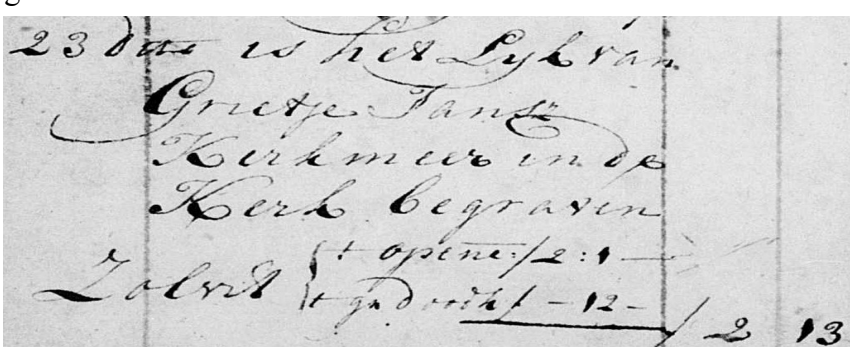 23 dito is het Lyk van
Grietje Jansz
Kerkmeer in de
Kerk begraven
Zolvit { 't opene: / 2 : 1 —
't gr doodk / — 12 —
/ 2 13